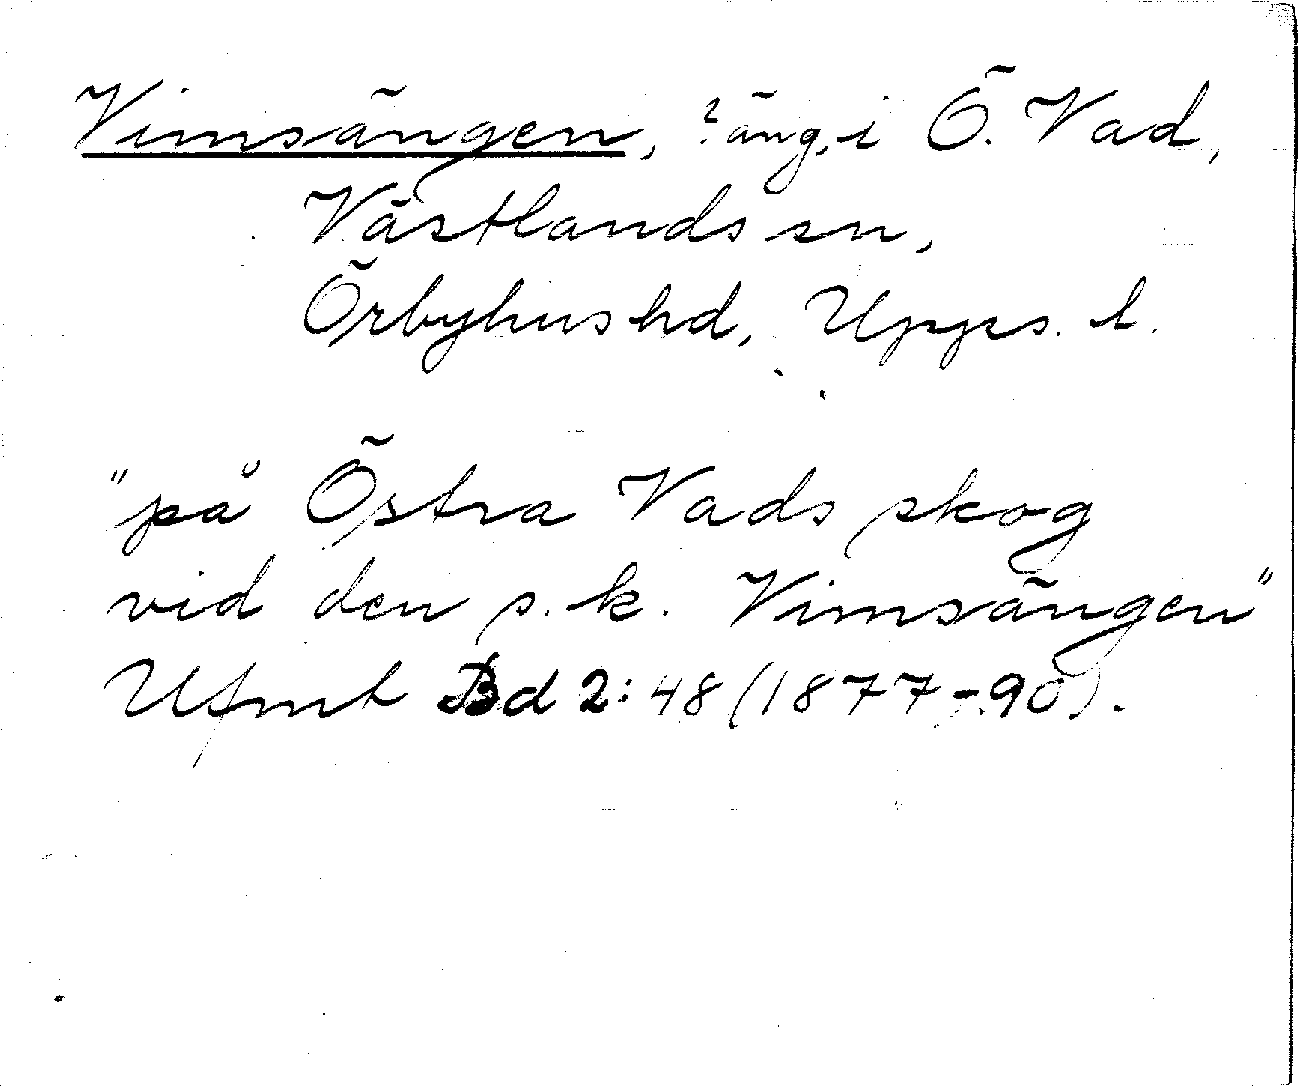 Vimsängen, ? äng, i Ö. Vad,
Västlands sn,
Örbyhus hd, Upps. l.
"på Östra Vads skog
vid den s. k. Vimsängen"
Ufmt Bd 2: 48 (1877-90).